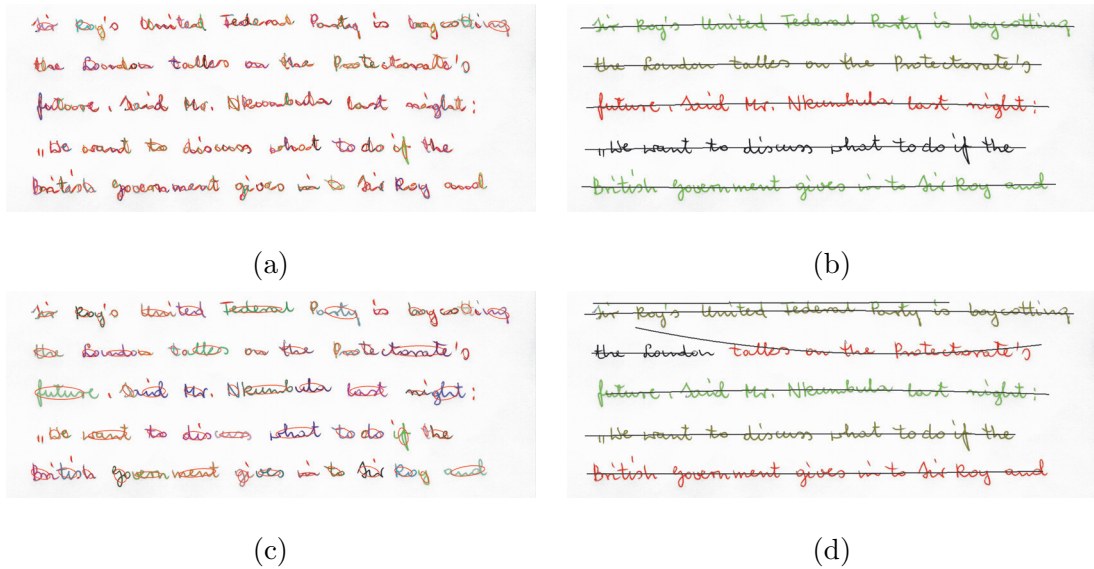 Sir Roy's United Federal Party is boycotting
the London talks on the Protectorate's
future. Said Mr. Nkumbula last night:
„We want to discuss what to do if the
British government gives in to Sir Roy and
(a)
Sir Roy's United Federal Party is boycotting
the London talks on the Protectorate's
future. Said Mr. Nkumbula last night:
„We want to discuss what to do if the
British government gives in to Sir Roy and
(b)
Sir Roy's United Federal Party is boycotting
the London talks on the Protectorate's
future. Said Mr. Nkumbula last night:
„We want to discuss what to do if the
British government gives in to Sir Roy and
(c)
Sir Roy's United Federal Party is boycotting
the London talks on the Protectorate's
future. Said Mr. Nkumbula last night:
„We want to discuss what to do if the
British government gives in to Sir Roy and
(d)